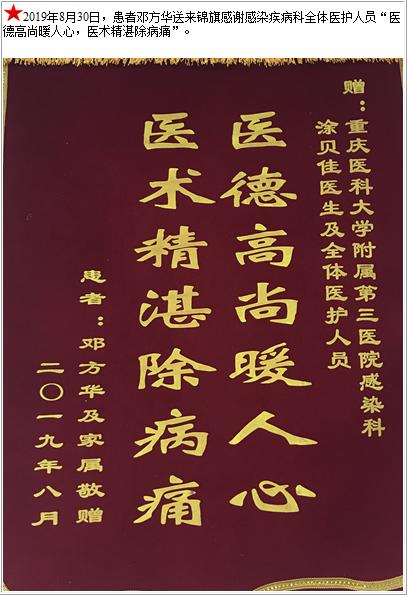 2019年8月30日，患者邓方华送来锦旗感谢感染疾病科全体医护人员“医
德高尚暖人心，医术精湛除病痛”。
赠：重庆医科大学附属第三医院感染科
涂贝佳医生及全体医护人员
医德高尚暖人心
医术精湛除病痛
患者：邓方华及家属敬赠
二〇一九年八月